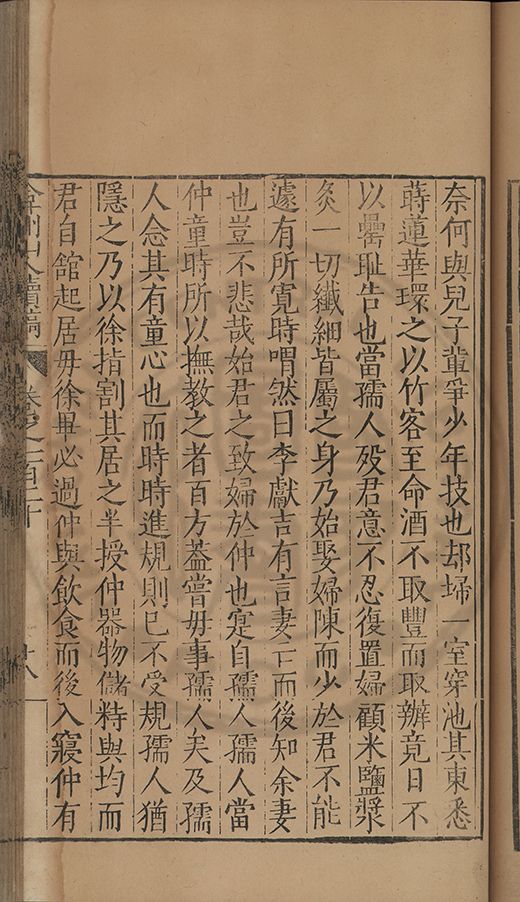 奈何與兒子輩爭少年技也却埽一室穿池其東悉
蒔蓮華環之以竹客至命酒不取豐而取辦竟日不
以罍恥告也當孺人歿君意不忍復置婦顧米鹽漿
灸一切纖細皆屬之身乃始娶婦陳而少於君不能
遽有所寬時喟然曰李獻吉有言妻亡而後知余妻
也豈不悲哉始君之致婦於仲也寔自孺人孺人當
仲童時所以撫教之者百方葢嘗毋事孺人矣及孺
人念其有童心也而時時進規則已不受規孺人猶
隱之乃以徐指割其居之半授仲器物儲峙與均而
君自舘起居毋徐畢必過仲與飲食而後入寢仲有
弇州山人續稿 卷之一百二十 十八